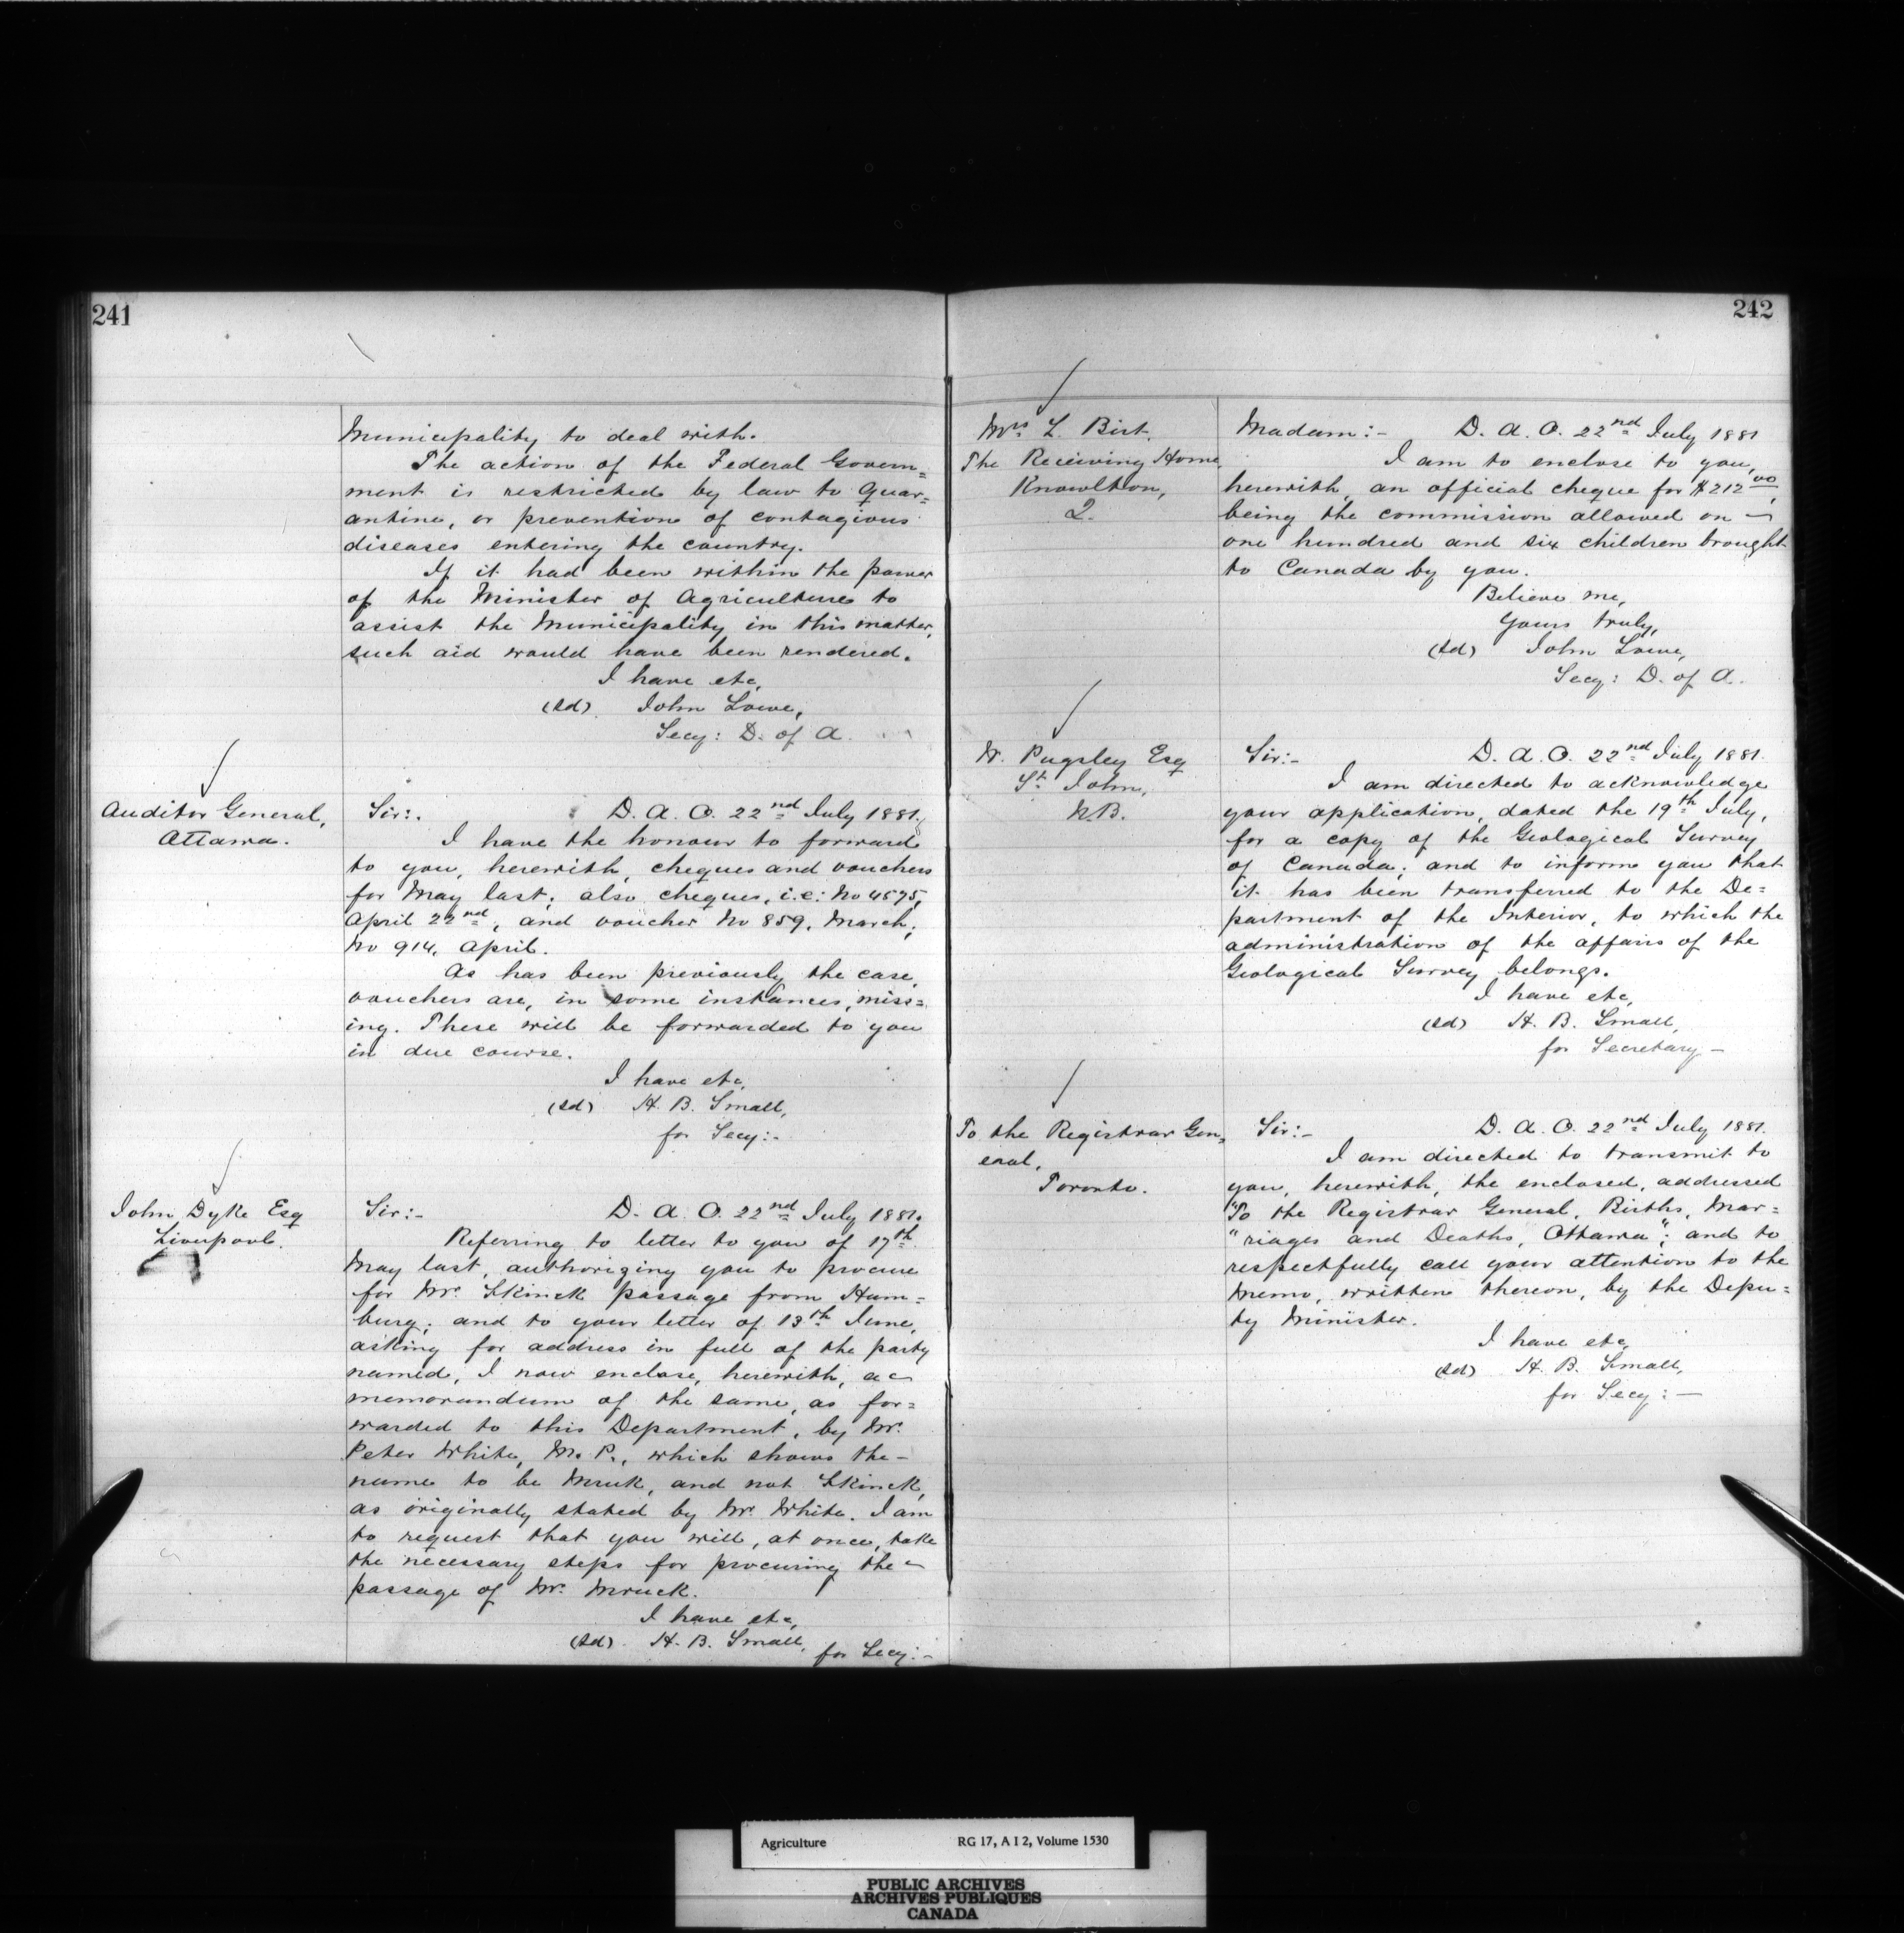 241
Municipality to deal with.
The action of the Federal Govern=
ment is restricted by law to Quar=
antine, or prevention of contagious
diseases entering the country.
If it had been within the power
of the Minister of Agriculture to
assist the Municipality in this matter,
such aid would have been rendered.
I have etc,
(sd) John Lowe,
Secy: D. of A.
Auditor General,
Ottawa.
Sir:. D. A. O. 22nd July 1881.
I have the honour to forward
to you, herewith, cheques and vouchers
for May last; also cheques, i.e: No 4575,
April 22nd, and voucher No 859, March;
No 914, April.
As has been previously the case,
vouchers are, in some instances, miss=
ing. These will be forwarded to you
in due course.
I have etc,
(sd) H. B. Small,
for Secy:-
John Dyke Esq
Liverpool.
Sir:- D. A. O. 22nd July 1881.
Referring to letter to you of 17th
May last, authorizing you to procure
for Mr. Skinck passage from Ham=
burg; and to your letter of 13th June,
asking for address in full of the party
named, I now enclose, herewith, a
memorandum of the same, as for=
warded to this Department, by Mr.
Peter White, M. P., which shows the -
name to be Mruk, and not Skinck,
as originally stated by Mr. White. I am
to request that you will, at once, take
the necessary steps for procuring the
passage of Mr. Mruck.
I have etc,
(sd) H. B. Small, for Secy:-
242
Mrs L. Birt,
The Receiving Home,
Knowlton,
Q.
Madam:- D. A. O. 22nd July 1881
I am to enclose to you,
herewith, an official cheque for $212 00,
being the commission allowed on
one hundred and six children brought
to Canada by you.
Believe me,
Yours truly,
(sd) John Lowe,
Secy: D. of A.
W. Pugsley Esq
St. John,
N.B.
Sir:- D. A. O. 22nd July 1881.
I am directed to acknowledge
your application, dated the 19th July,
for a copy of the Geological Survey
of Canada; and to inform you that
it has been transferred to the De=
partment of the Interior, to which the
administration of the affairs of the
Geological Survey belongs.
I have etc,
(sd) H. B. Small,
for Secretary -
To the Registrar Gen=
eral,
Toronto.
Sir:- D. A. O. 22nd July 1881.
I am directed to transmit to
you, herewith, the enclosed, addressed
"To the Registrar General, Births, Mar=
"riages and Deaths, Ottawa"; and to
respectfully call your attention to the
Memo, written thereon, by the Depu=
ty Minister.
I have etc,
(sd) H. B. Small,
for Secy:-
Agriculture RG 17, A I 2, Volume 1530
PUBLIC ARCHIVES
ARCHIVES PUBLIQUES
CANADA